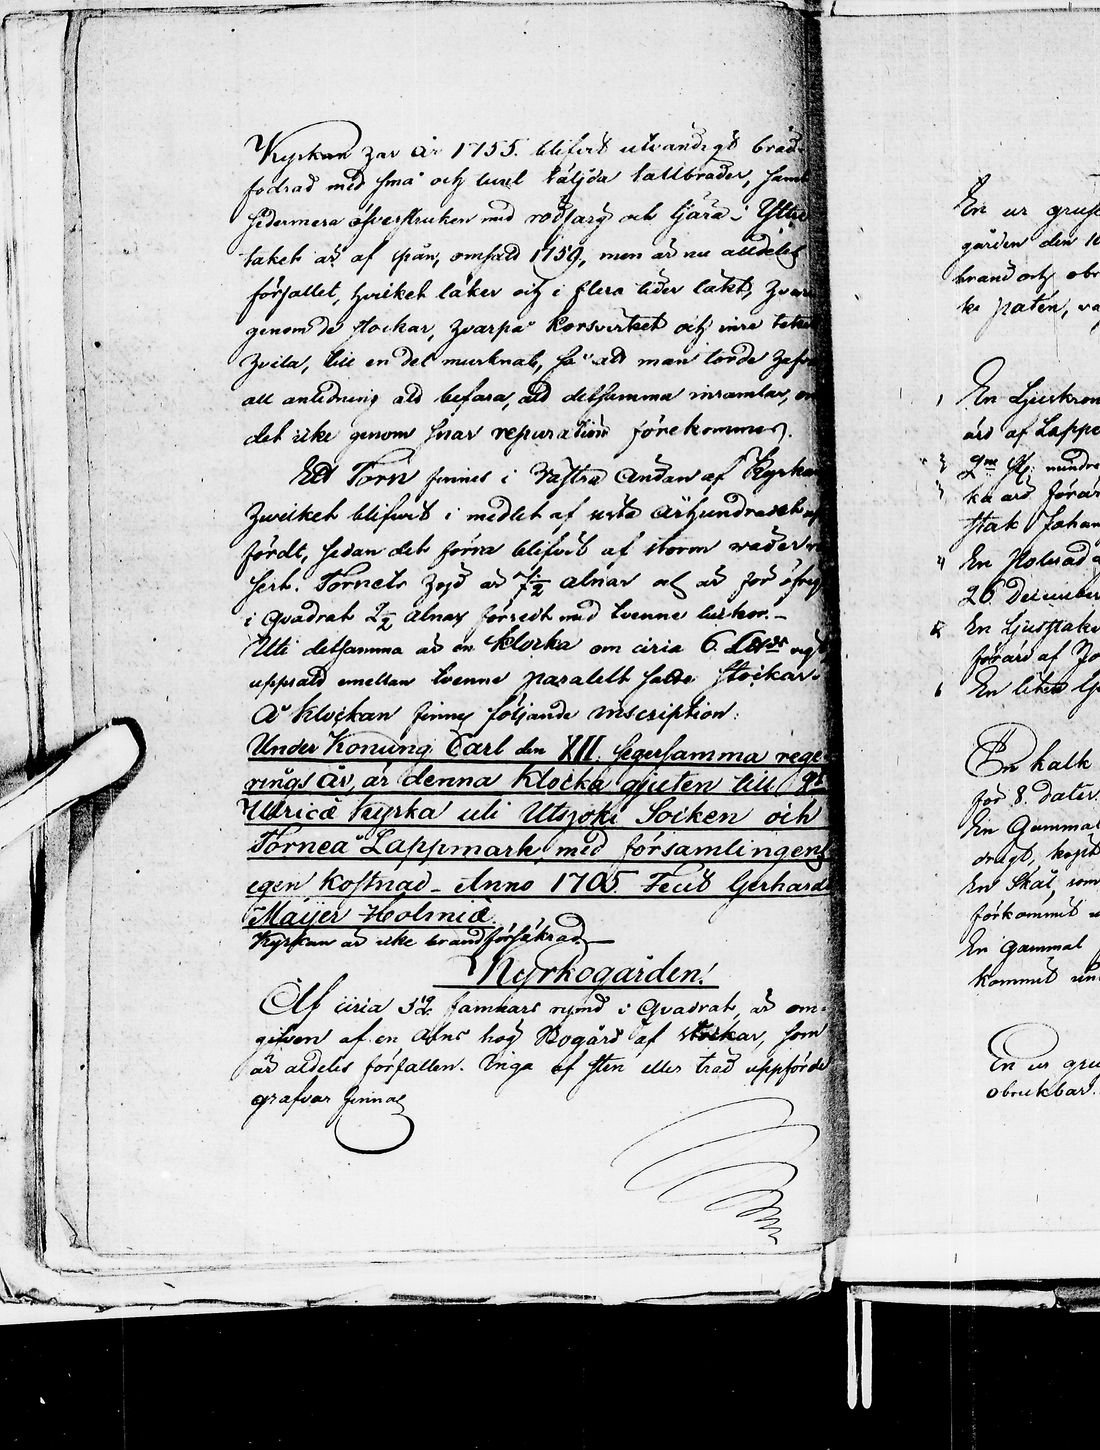 Kyrkan har år 1755. blifvit utvändigt bräd-
fodrad med små och luxl täljda tallbräder, samt
sedermera öfverstruken med rödfärg och tjära; Yttre
taket är af spån, omsatt 1759, men är nu alldeles
förfallet, hvilket läker och i flera tider läkt, hvari
genom de stockar, hvarpå korsvirket och inre taket
hvila, till en del murknat, så att man torde hafva
all anledning att befara, att detsamma inramlar, om
det icke genom snar reparation förekommes.
Ett Torn finnes i Västra Ändan af Kyrkan
hvilket blifvit i medlet af sista århundradet upp
fördt, sedan det förra blifvit af storm väder
Tornets höjd är 7½ alnar och är för öfrigt
i Qvadrat 2½ alnar försedt med tvenne luckor.-
Uti detsamma är en klocka om circa 6. vigt
uppsatt emellan tvenne paralelt satte stockar.
Å klockan finnes följande inscription:
Under Konung Carl den XII. segersamma rege-
rings år, är denna klocka gjuten till
Ulricæ Kyrka uti Utsjoki Socken och
Torneå Lappmark, med församlingens
egen kostnad - Anno 1705. Fecit Gerhard
Maijer Holmiæ.
Kyrkan är icke brandförsäkrad
Kyrkogården!
Af circa 52 famnars rymd i Qvadrat, är om-
gifven af en Alns hög Rogård af stockar, som
är aldeles förfallen. Inga af sten eller träd uppförde
grafvar finnas
En ur
gården den
brand och
ke patén,
1 En Ljuskron
ård af Lappe
2
3 ka
stak Johan
4 En
26 December
5 En Ljusstake
förärd af Jo
6 En liten
En kalk
för 8. dater.
En Gammal
drägt, köpt
En Skål, som
förkommit
En gammal
kommit
En ur
obrukbar.